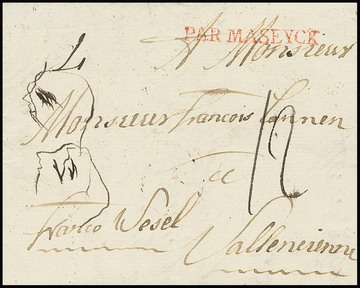 PAR MASEYCK
A Monsieur
Monsieur Francois
a
12
Franco Wesel
Vallencienne